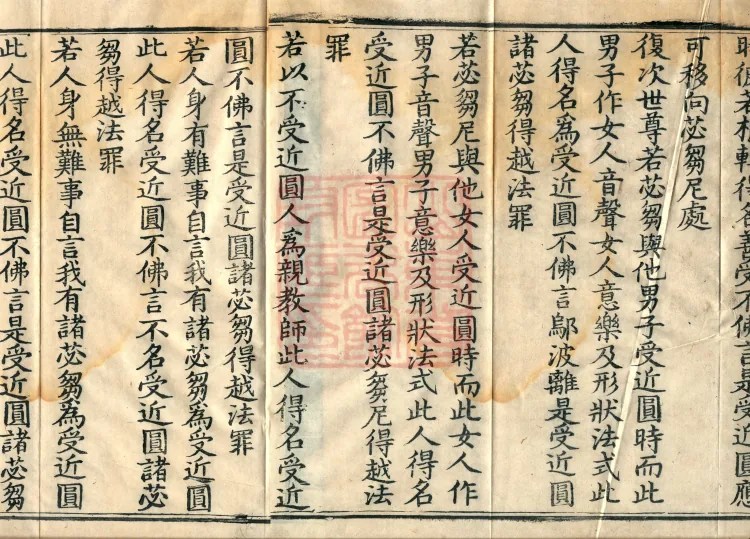 時彼若根轉得名善受不佛言是受近圓應
可移向苾芻尼處
復次世尊若苾芻與他男子受近圓時而此
男子作女人音聲女人意樂及形狀法式此
人得名爲受近圓不佛言鄔波離是受近圓
諸苾芻得越法罪
若苾芻尼與他女人受近圓時而此女人作
男子音聲男子意樂及形狀法式此人得名
受近圓不佛言是受近圓諸苾芻尼得越法
罪
若以不受近圓人爲親教師此人得名受近
圓不佛言是受近圓諸苾芻得越法罪
若人身有難事自言我有諸苾芻爲受近圓
此人得名受近圓不佛言不名受近圓諸苾
芻得越法罪
若人身無難事自言我有諸苾芻爲受近圓
此人得名受近圓不佛言是受近圓諸苾芻